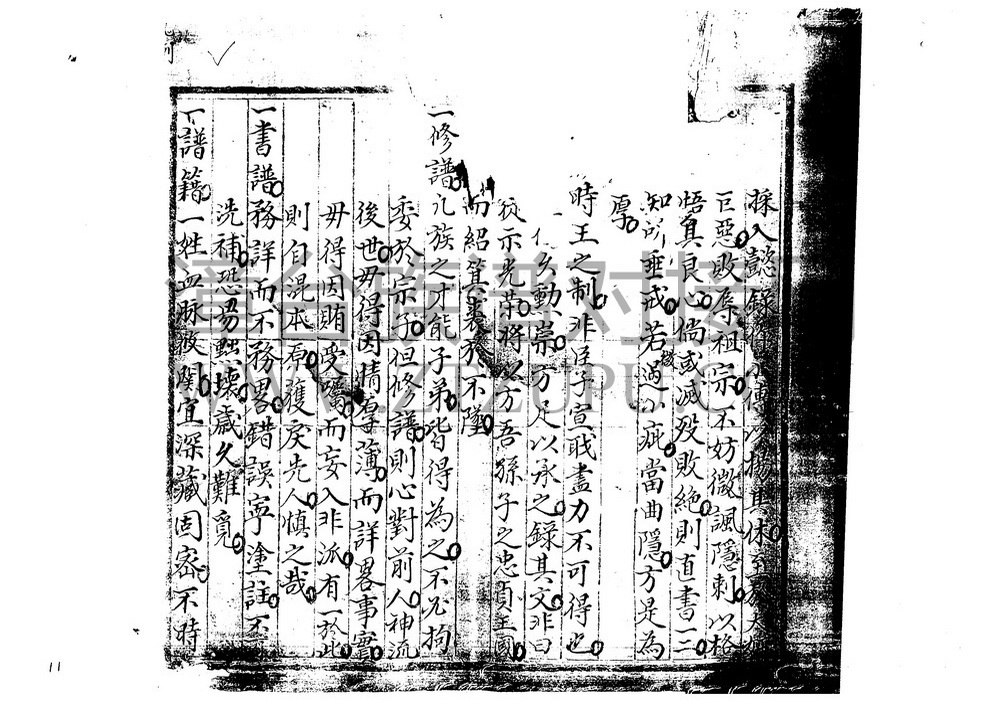 採入懿錄作小傳以揚其休至夫
巨惡敗辱祖宗不妨微諷隱刺以格
悟其良心倘或滅歿敗絕則直書一二
知所垂戒若過小疵當曲隱方是為
厚
時王之制非臣子宣戢盡力不可得也
勳崇方足以承之錄其文非曰
示光榮將以方吾孫子之忠貞
紹箕裘於不墜
一修譜凡族之才能子弟皆得為之不必拘
委於宗子但修譜則心對前人神流
後世毋得因情厚薄而詳畧事實
毋得因賄受囑而妄入非派有一於此
則自混本原獲戾先人慎之哉
一書譜務詳而不務畧錯誤寧塗註不
洗補恐易黜壞歲久難覓
一譜籍一姓血脉攸關宜深藏固密不時
11